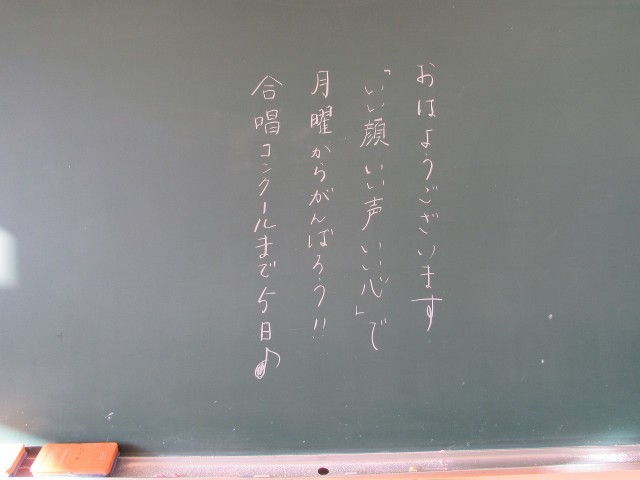 おはようございます
「いい顔 いい声 いい心」で
月曜からがんばろう!!
合唱コンクールまで5日♪